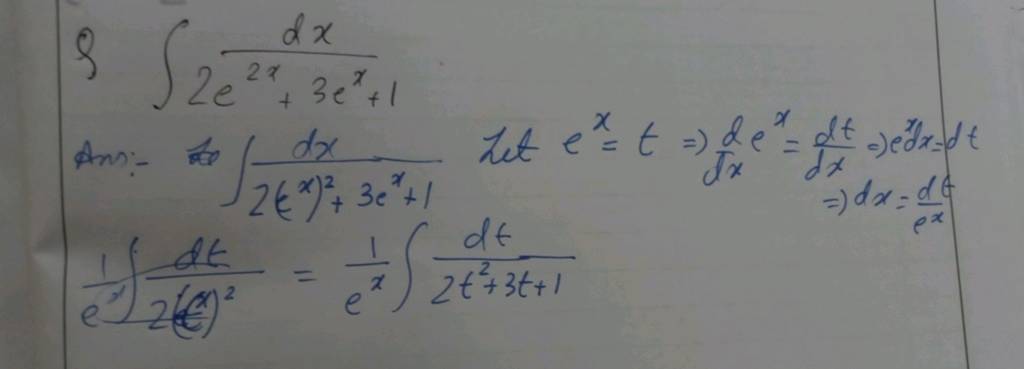 Q ∫ dx / 2e^2x + 3e^x + 1
Ans:- ∫ dx / 2(e^x)^2 + 3e^x + 1 Let e^x = t => d/dx e^x = dt/dx => e^x dx = dt
=> dx = dt/e^x
1/e^x ∫ dt / 2(e^x)^2 = 1/e^x ∫ dt / 2t^2 + 3t + 1